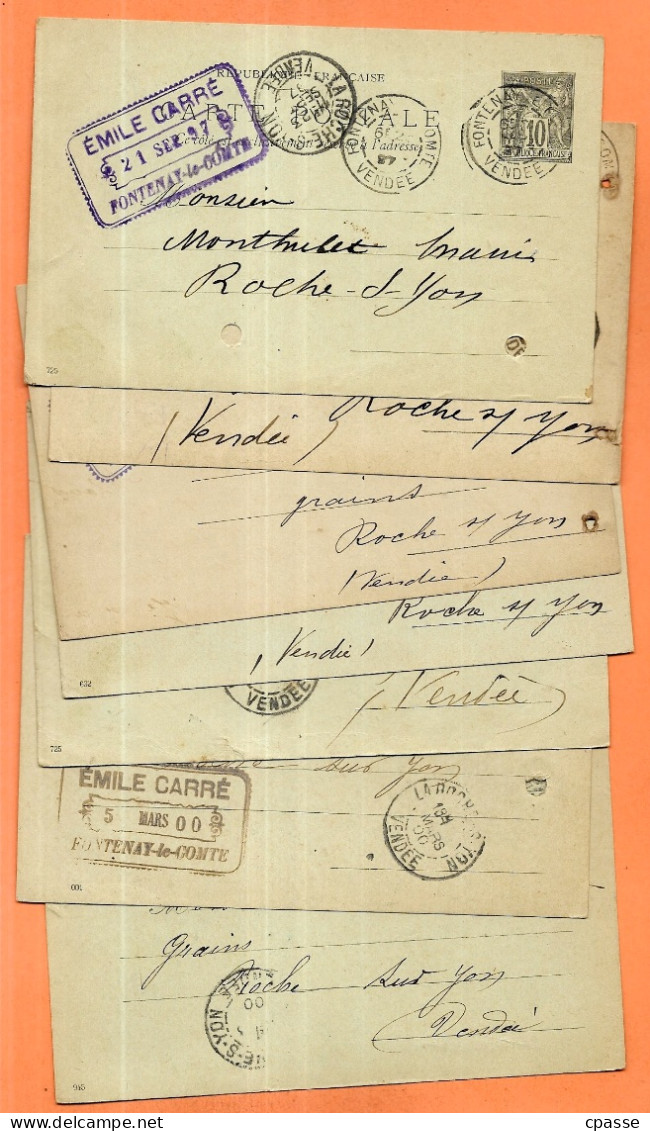 RÉPUBLIQUE FRANÇAISE
POSTE
10
ÉMILE CARRÉ
21 SEPT 97
FONTENAY-le-COMTE
VENDÉE
LA ROCHE-S-YON
FONTENAY COMTE
97
VENDÉE
FONTENAY
VENDÉE
Monsieur
Roche-s-Yon
725
Roche s/ Yon
(Vendée)
grains
Roche s/ Yon
(Vendée)
Roche s/ Yon
(Vendée)
632
VENDÉE
Vendée
725
sur Yon
ÉMILE CARRÉ
5 MARS 00
FONTENAY-le-COMTE
LA ROCHE-S-YON
MARS
00
VENDÉE
Grains
Roche sur Yon
Vendée
00
NE-S-YON
945
cpasse